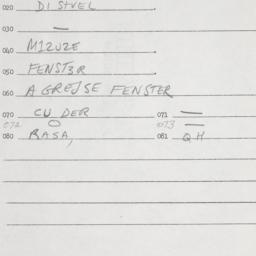 020 DISTVEL
030 —
040 MIZUZE
050 FENSTER
060 A GREJSE FENSTER
070 CU DER 071 —
072 O 073 —
080 RASA, 081 QH